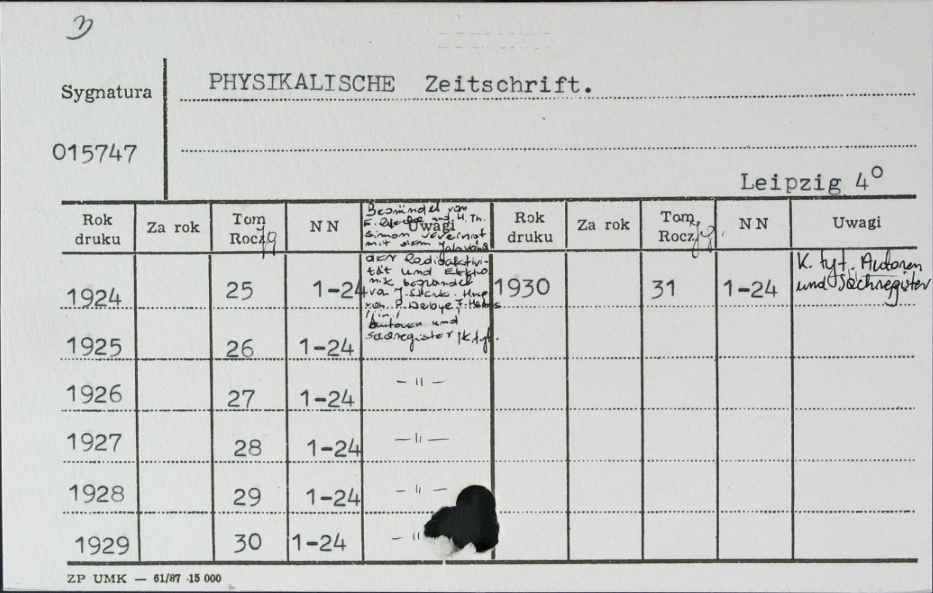 Sygnatura
PHYSIKALISCHE Zeitschrift.
015747
Leipzig 4°
Rok druku Za rok Tom Rocz. NN Uwagi Rok druku Za rok Tom Rocz. NN Uwagi
Begründet von
E. Riecke und H. Th.
Simon Vereinigt
mit dem
der Radioaktivi-
tät und Elektro
nik begründet
von J. Stark. Hrsg
von. P. Debye,
Autoren und
Sachregister /K.tyt.
1924 25 1-24 1930 31 1-24 K. tyt. Autoren
und Sachregister
1925 26 1-24
1926 27 1-24 - " -
1927 28 1-24 - " -
1928 29 1-24 - " -
1929 30 1-24 - "
ZP UMK — 61/87 15 000